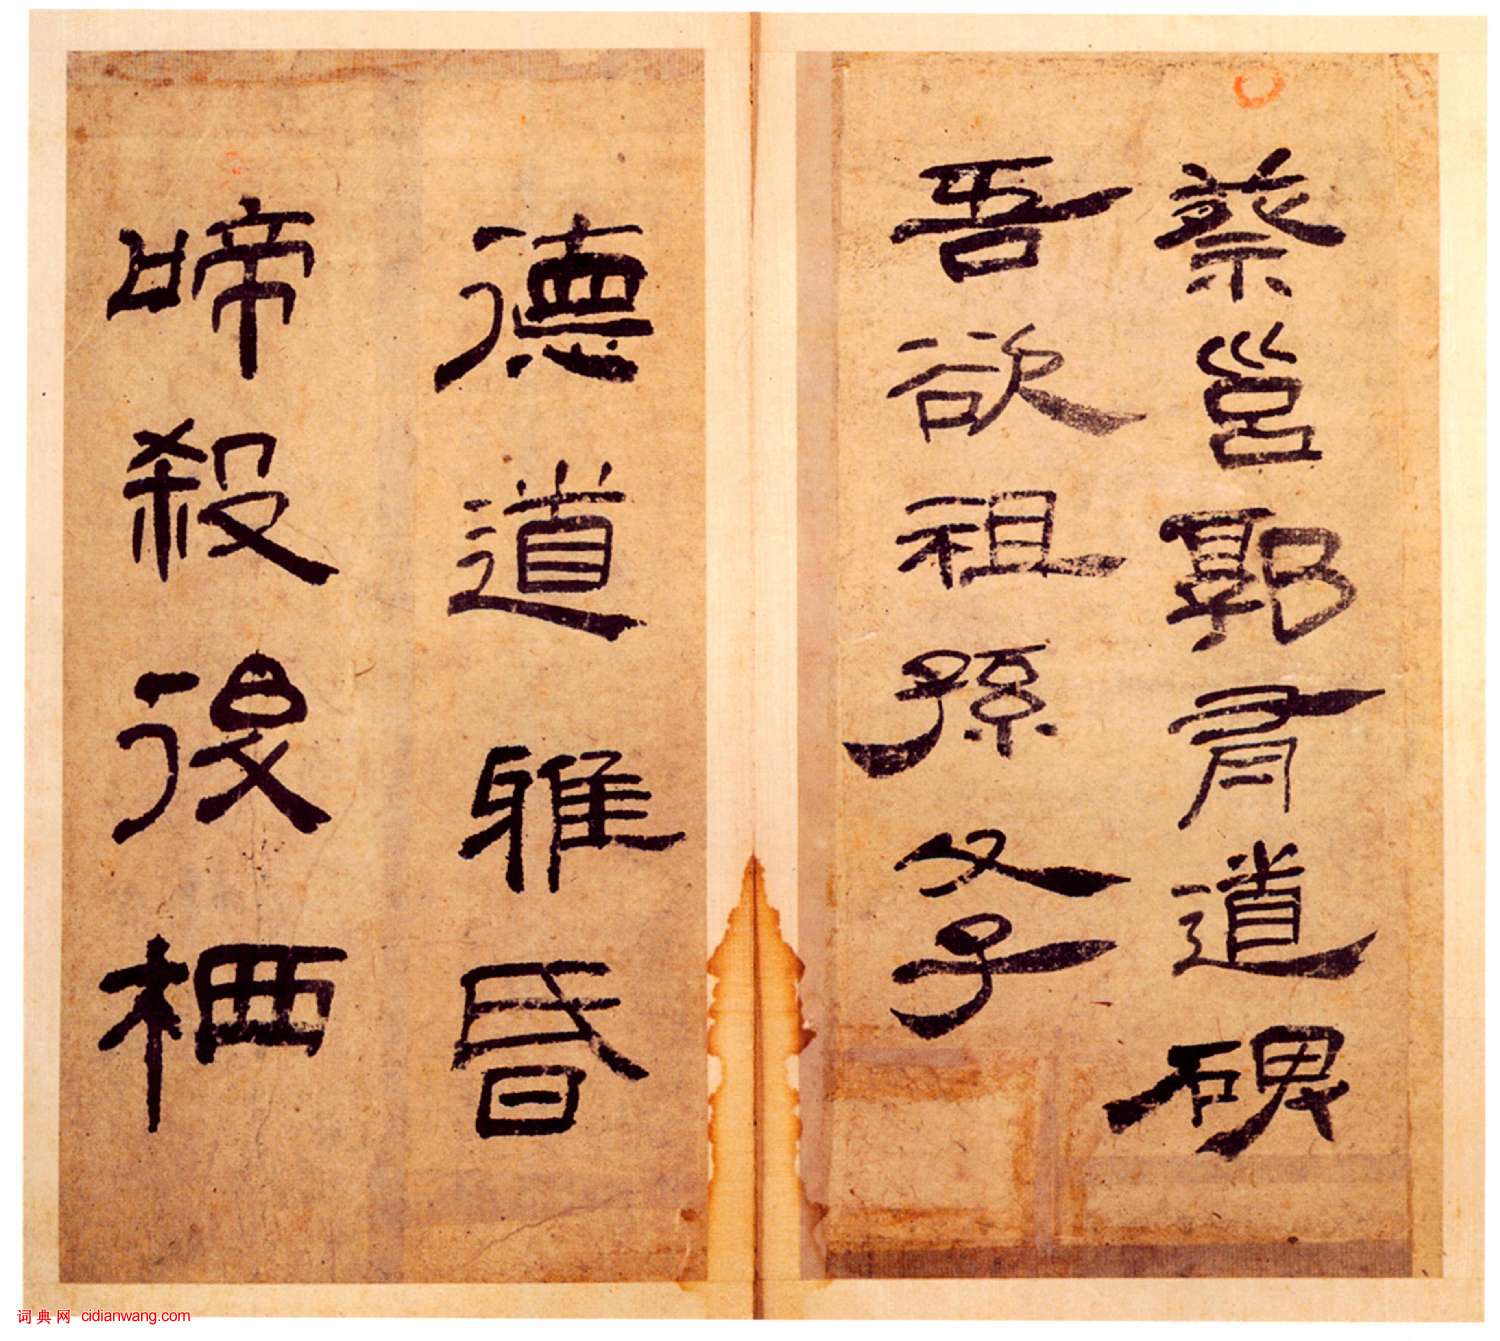 蔡邕郭有道碑
吾欲祖孫父子
德道雅昏
啼殺後栖
词典网 cidianwang.com